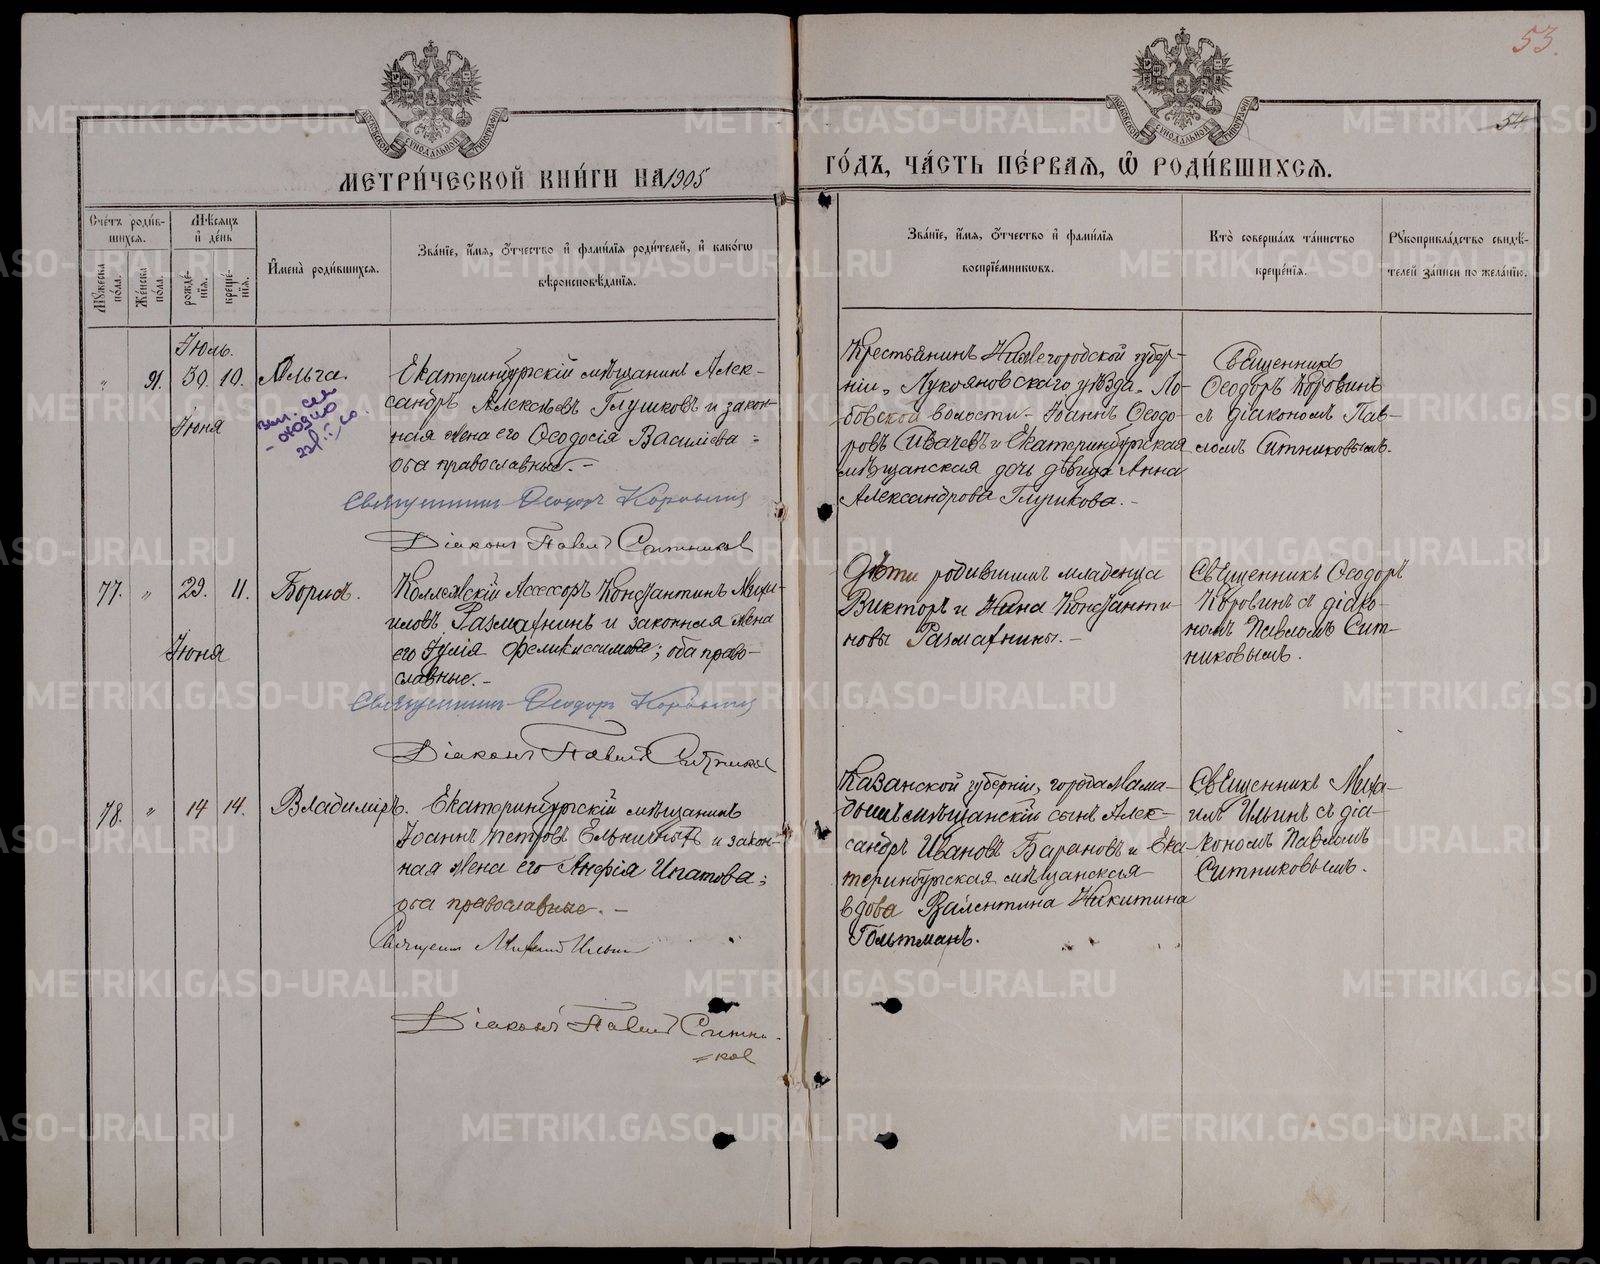 53.
54
МОСКОВСКОЙ СѴНОДАЛЬНОЙ ТИПОГРАФІИ
МОСКОВСКОЙ СѴНОДАЛЬНОЙ ТИПОГРАФІИ
МЕТРИ́ЧЕСКОЙ КНИ́ГИ НА 1905
ГО́ДЪ, ЧА́СТЬ ПЕ́РВАЯ, Ѡ҆ РОДИ́ВШИХСЯ.
Сче́тъ роди́в-
шихся.
Мꙋ́жеска по́ла.
Же́нска по́ла.
Мѣ́сяцъ
и҆ де́нь
рожде́-
нїя.
креще́-
нїя.
И҆мена̀ роди́вшихся.
Зва́нїе, и҆́мя, ѻ҆́тчество и҆ фами́лїя роди́телей, и҆ како́гѡ
вѣроисповѣ́данїя.
Зва́нїе, и҆́мя, ѻ҆́тчество и҆ фами́лїя
воспрїе́мникѡвъ.
Кто̀ соверша́лъ та́инство
креще́нїя.
Рꙋкоприкла́дство свидѣ́-
телей за́писи по жела́нїю.
Іюль.
„ 91. 30. 10. Ольга.
Іюня
Екатеринбургскій мѣщанинъ Алек-
сандръ Алексѣевъ Глушковъ и закон-
ная жена его Ѳеодосія Василіева;
оба православные. –
Священникъ Ѳеодоръ Коровинъ
Діаконъ Павелъ Ситниковъ
Крестьянинъ Нижегородской губер-
ніи, Лукояновскаго уѣзда, Ло-
бовской волости Іоаннъ Ѳеодо-
ровъ Сивачевъ и Екатеринбургская
мѣщанская дочь дѣвица Анна
Александрова Глушкова. –
Священникъ
Ѳеодоръ Коровинъ
съ діакономъ Пав-
ломъ Ситниковымъ.
77. „ 29. 11. Борисъ.
Іюня
Коллежскій Ассессоръ Константинъ Михаи-
иловъ Размахнинъ и законная жена
его Юлія Феликиссимова; оба право-
славные. –
Священникъ Ѳеодоръ Коровинъ
Діаконъ Павелъ Ситников
Дѣти родившим младенца
Викторъ и Нина Константи-
новы Размахнины. –
Священникъ Ѳеодоръ
Коровинъ съ діако-
номъ Павломъ Сит-
никовымъ.
78. „ 14 14. Владиміръ.
Екатеринбургскій мѣщанинъ
Іоаннъ Петровъ и закон-
ная жена его Анфія Ипатова;
оба православные. –
Священникъ Михаилъ Ильинъ
Діаконъ Павелъ Ситни-
=ковъ
Казанской губерніи, города Мама-
дышъ мѣщанскій сынъ Алек-
сандръ Ивановъ Барановъ и Ека-
теринбургская мѣщанская
вдова Валентина Никитина
Гольтманъ.
Священникъ Миха-
илъ Ильинъ съ діа-
кономъ Павломъ
Ситниковымъ.
METRIKI.GASO-URAL.RU